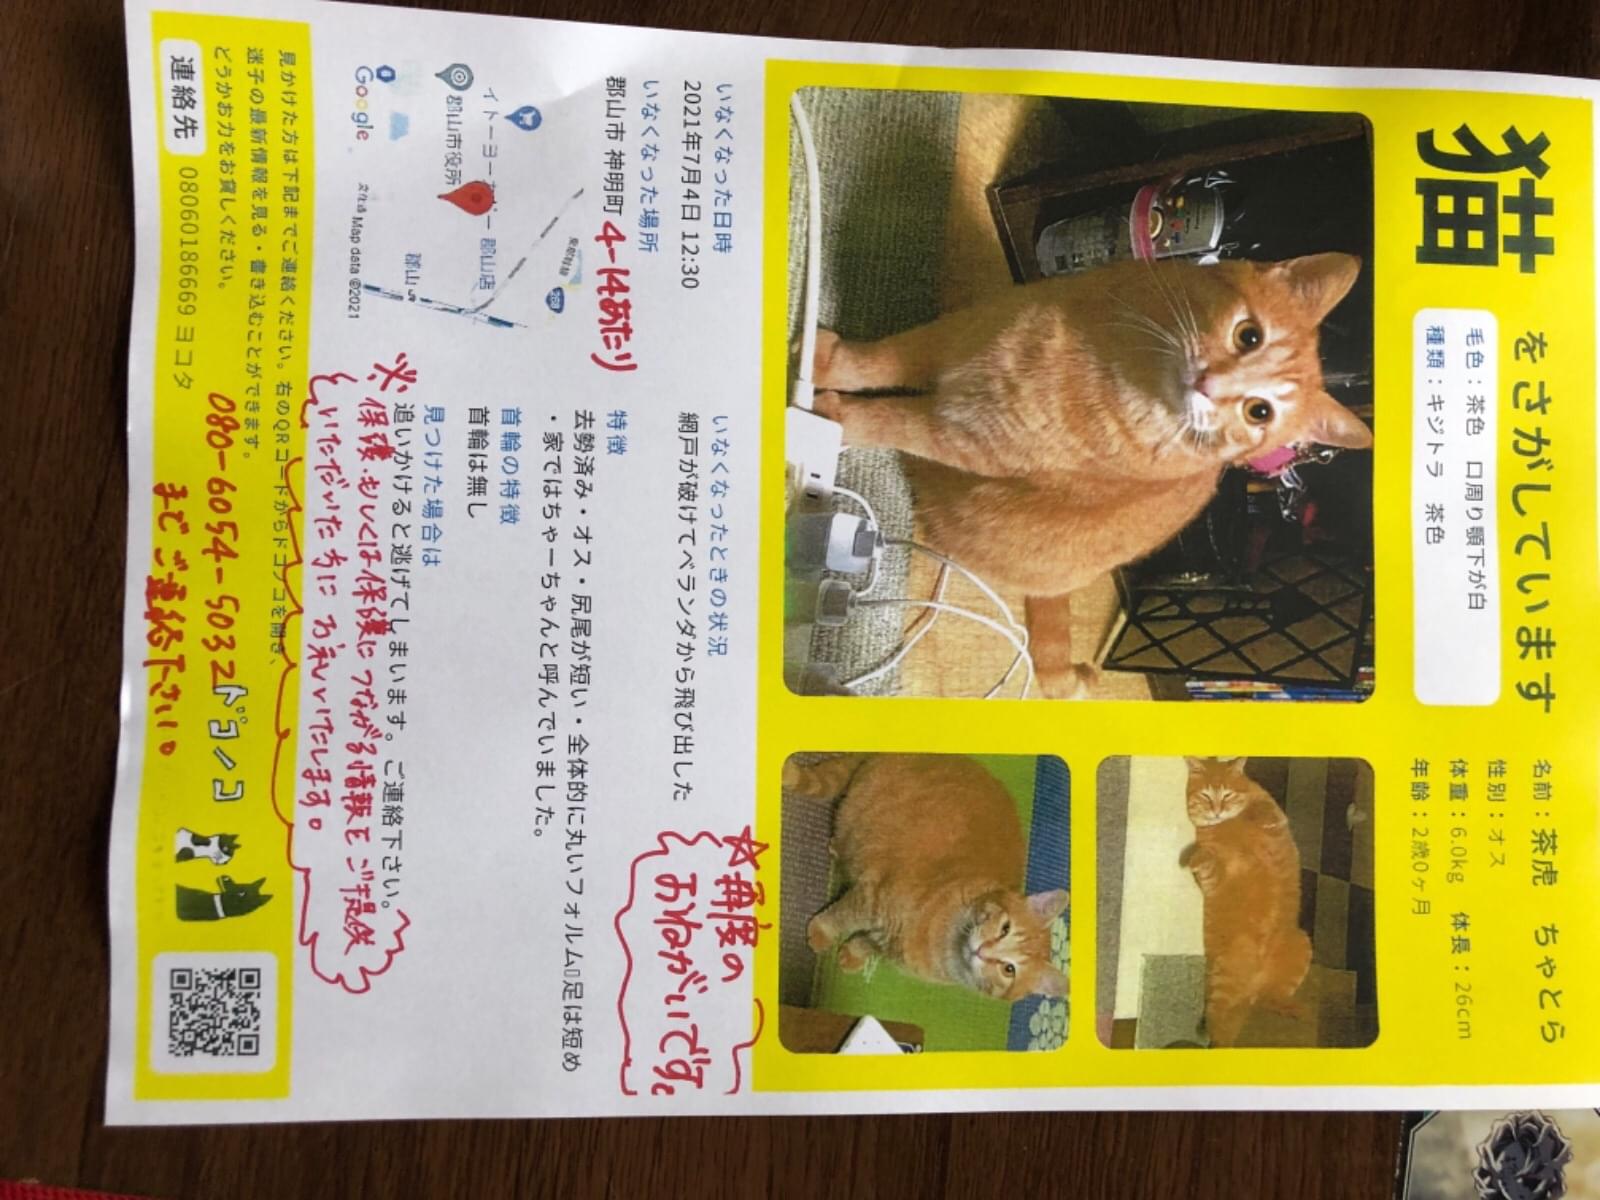 猫をさがしています
毛色：茶色 口周り顎下が白
種類：キジトラ 茶色
名前：茶虎 ちゃとら
性別：オス
体重：6.0kg 体長：26cm
年齢：2歳0ヶ月
いなくなった日時
2021年7月4日 12:30
いなくなった場所
郡山市 神明町 4-14あたり
イトーヨーカドー 郡山店
郡山市役所
郡山
288
Google
Map data ©2021
いなくなったときの状況
網戸が破けてベランダから飛び出した
☆再度の
おねがいです。
特徴
去勢済み・オス・尻尾が短い・全体的に丸いフォルム▯足は短め
・家ではちゃーちゃんと呼んでいました。
首輪の特徴
首輪は無し
見つけた場合は
追いかけると逃げてしまいます。ご連絡下さい。
※保護、もしくは保護につながる情報をご提供
いただいた方にお礼いたします。
見かけた方は下記までご連絡ください。右のQRコードからドコノコを開き、
迷子の最新情報を見る・書き込むことができます。
どうかお力をお貸しください。
連絡先 08060186669 ヨコタ
080-6054-5032
までご連絡下さい。
ドコノコ